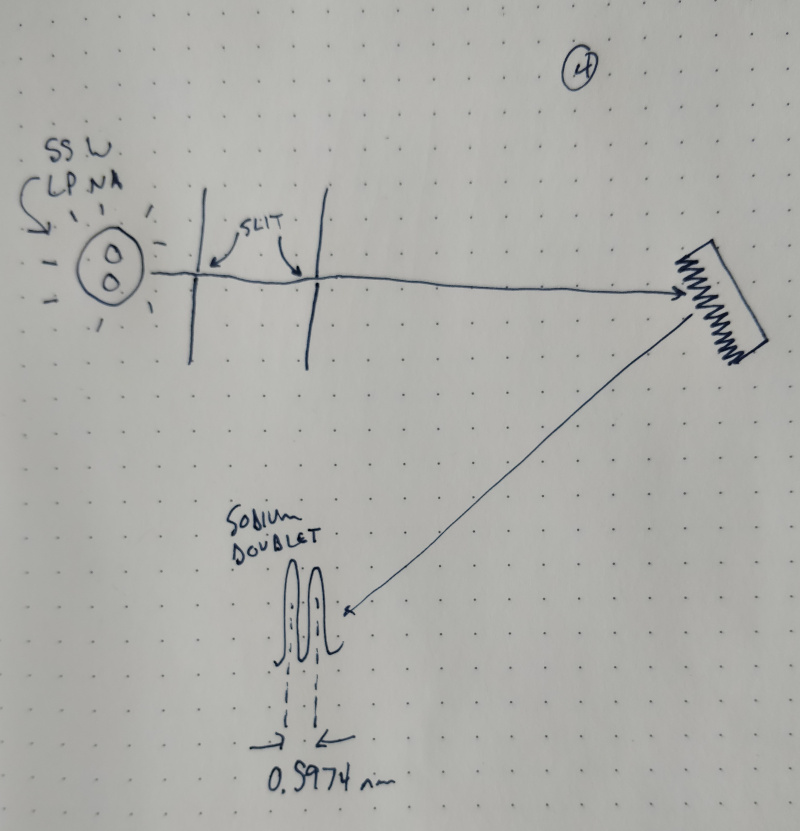 4
55 W
LP NA
SLIT
SODIUM
DOUBLET
0.5974 nm